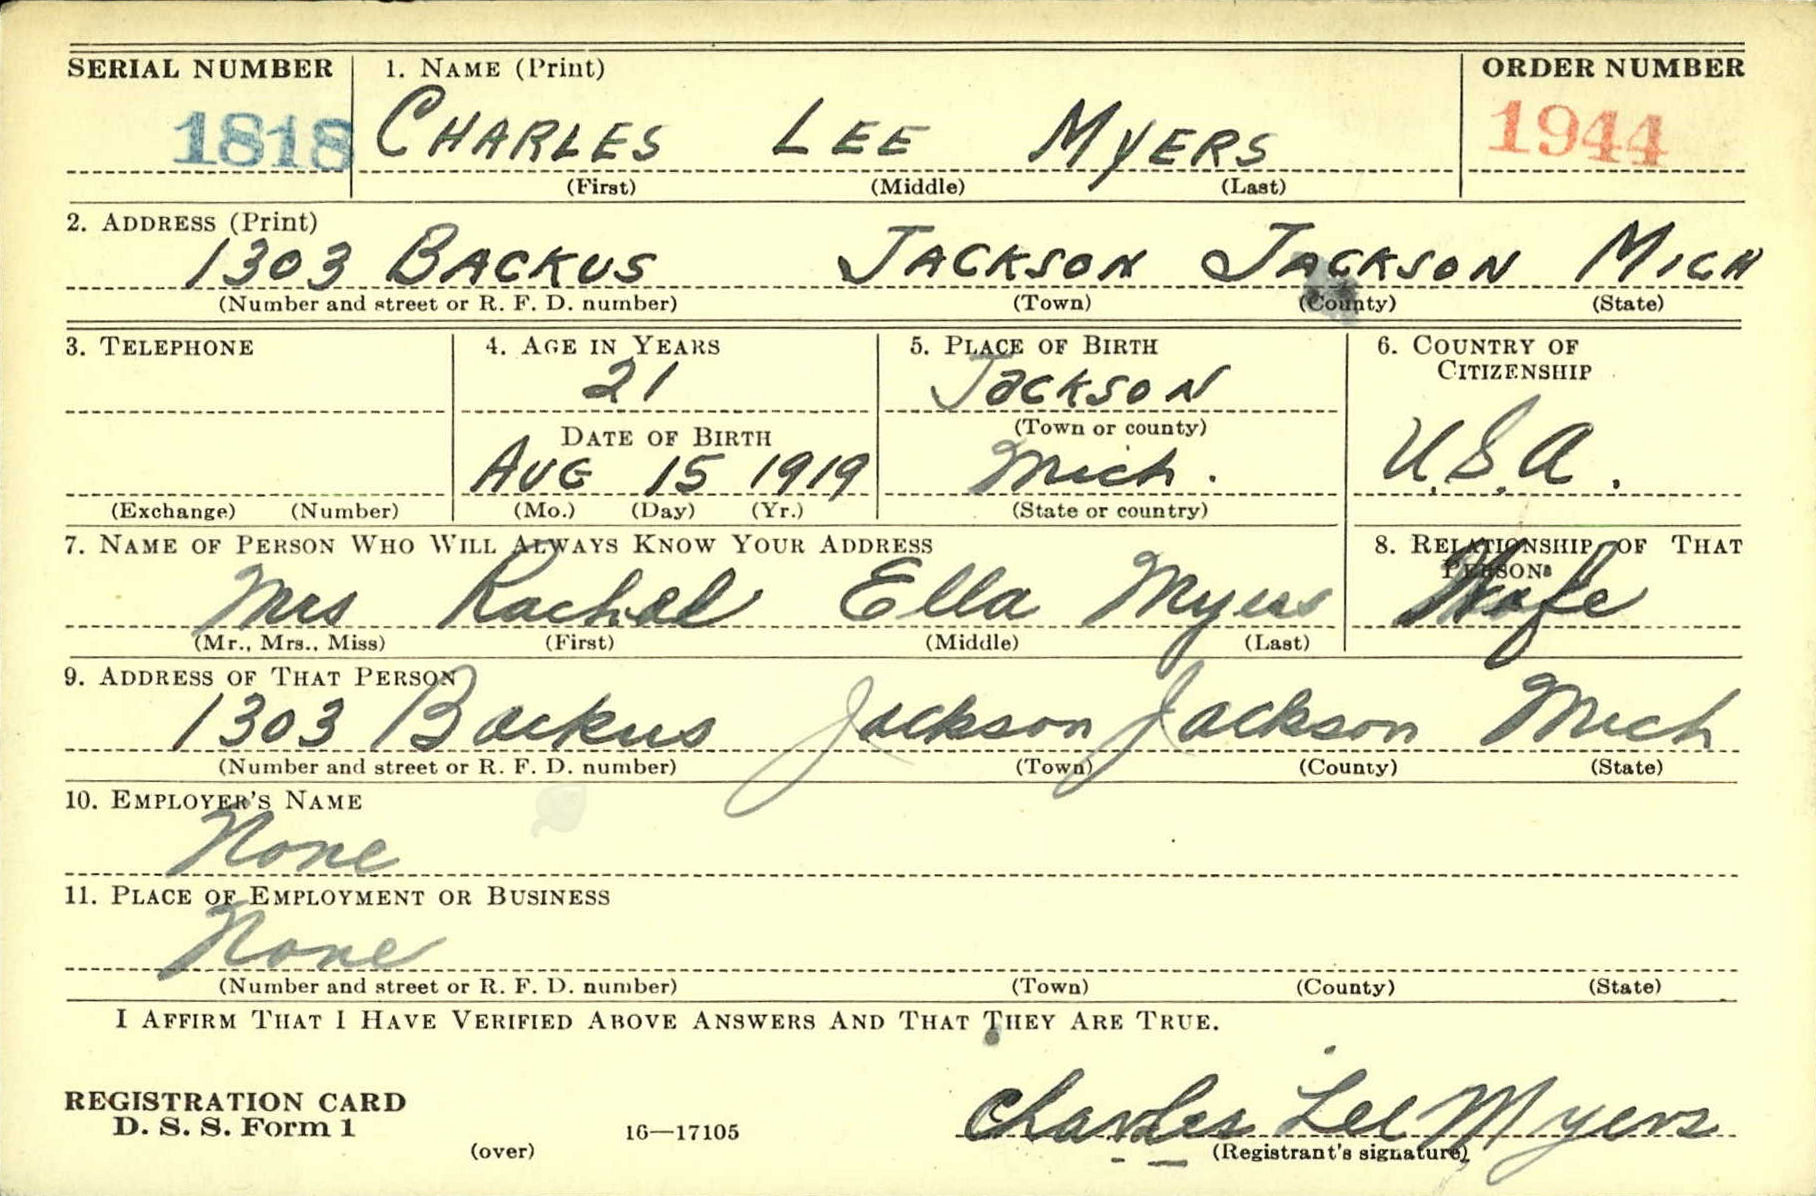 SERIAL NUMBER 1. NAME (Print) ORDER NUMBER
1818 CHARLES LEE MYERS 1944
(First) (Middle) (Last)
2. ADDRESS (Print)
1303 BACKUS JACKSON JACKSON MICH
(Number and street or R. F. D. number) (Town) (County) (State)
3. TELEPHONE 4. AGE IN YEARS 5. PLACE OF BIRTH 6. COUNTRY OF CITIZENSHIP
21 JACKSON
(Town or county)
DATE OF BIRTH
AUG 15 1919 Mich. U.S.A.
(Exchange) (Number) (Mo.) (Day) (Yr.) (State or country)
7. NAME OF PERSON WHO WILL ALWAYS KNOW YOUR ADDRESS 8. RELATIONSHIP OF THAT PERSON
Mrs Rachel Ella Myers Wife
(Mr., Mrs., Miss) (First) (Middle) (Last)
9. ADDRESS OF THAT PERSON
1303 Backus Jackson Jackson Mich
(Number and street or R. F. D. number) (Town) (County) (State)
10. EMPLOYER'S NAME
None
11. PLACE OF EMPLOYMENT OR BUSINESS
None
(Number and street or R. F. D. number) (Town) (County) (State)
I AFFIRM THAT I HAVE VERIFIED ABOVE ANSWERS AND THAT THEY ARE TRUE.
REGISTRATION CARD
D. S. S. Form 1
(over) 16—17105
Charles Lee Myers
(Registrant's signature)